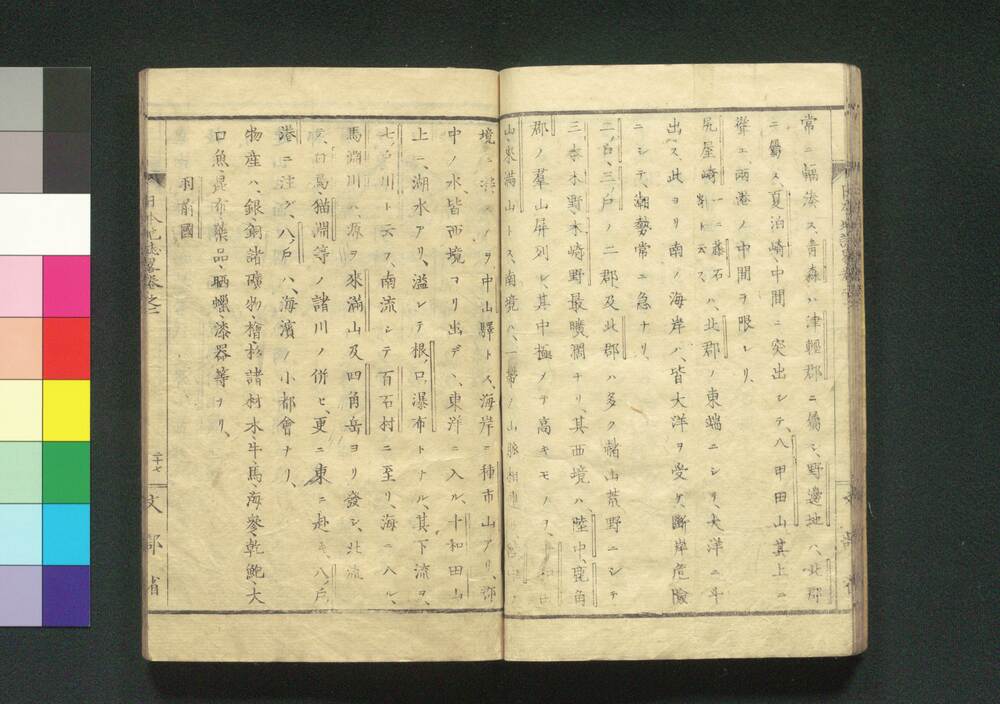 常ニ輻湊ス、青森ハ津輕郡ニ屬シ、野邊地ハ、北郡
ニ屬ス、夏泊崎、中間ニ突出シテ、八甲田山其上ニ
聳エ、兩港ノ中間ヲ限レリ、
尻屋崎一ニ藤石崎ト云フハ、北郡ノ東端ニシテ、大洋ニ斗
出ス、此ヨリ南ノ海岸ハ、皆大洋ヲ受ケ、斷岸危險
ニシテ、潮勢常ニ急ナリ、
二戸、三戸ノ二郡、及北郡ハ多ク赭山荒野ニシテ
三本木野、木崎野最曠濶ナリ、其西境ハ、陸中、鹿角
郡ノ羣山屏列シ、其中極メテ高キモノヲ、
山、來滿山トス、南境ハ、一帶ノ山脉相連
境ニ ノヲ、中山驛トス、海岸ニ種市山アリ、郡
中ノ水、皆西境ヨリ出デヽ、東洋ニ入ル、十和田山
上ニ、湖水アリ、溢レテ根ノ口瀑布トナル、其下流ヲ、
七戸川ト云フ、南流シテ百石村ニ至リ、海ニ入ル、
馬淵川ハ、源ヲ來滿山及四角岳ヨリ發シ、北流
鳥猫淵等ノ諸川ノ併セ、更ニ東ニ赴キ、八戸
港ニ注グ、八戸ハ、海濱ノ小都會ナリ、
物産ハ、銀、銅諸礦物、檜杉諸材木、牛、馬、海參、乾鮑、大
口魚、昆布藥品、晒蠟、漆器等ナリ、
羽前國
日本地誌略卷之二
二十七
文部省